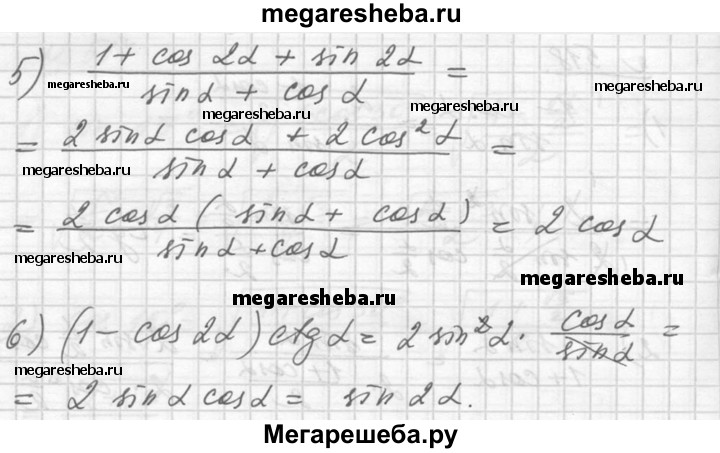 megaresheba.ru
5) (1 + cos 2α + sin 2α) / (sin α + cos α) =
megaresheba.ru megaresheba.ru megaresheba.ru
= (2 sin α cos α + 2 cos² α) / (sin α + cos α) =
megaresheba.ru megaresheba.ru
= (2 cos α ( sin α + cos α)) / (sin α + cos α) = 2 cos α
megaresheba.ru megaresheba.ru
megaresheba.ru
6.) (1 - cos 2α) ctg α = 2 sin² α · cos α / sin α =
megaresheba.ru
= 2 sin α cos α = sin 2α.
megaresheba.ru megaresheba.ru
Мегарешеба.ру